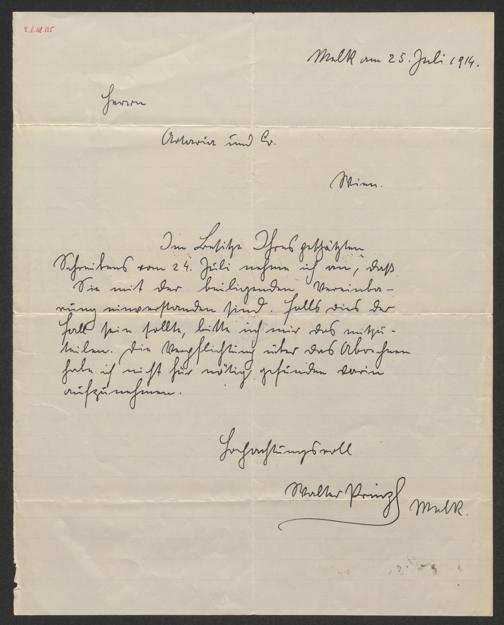 Melk am 25. Juli 1914.
Herrn
Artaria und Co.
Wien.
Im Besitze Ihres geschätzten
Schreibens vom 24. Juli nehme ich an, daß
Sie mit der beiligenden Vereinba-
rung einverstanden sind. Falls dies der
Fall sein sollte, bitte ich mir das mitzu-
teilen. Die Verpflichtung über das
habe ich nicht für nötig gefunden darin
aufzunehmen.
Hochachtungsvoll
Walter Prinzl
Melk.